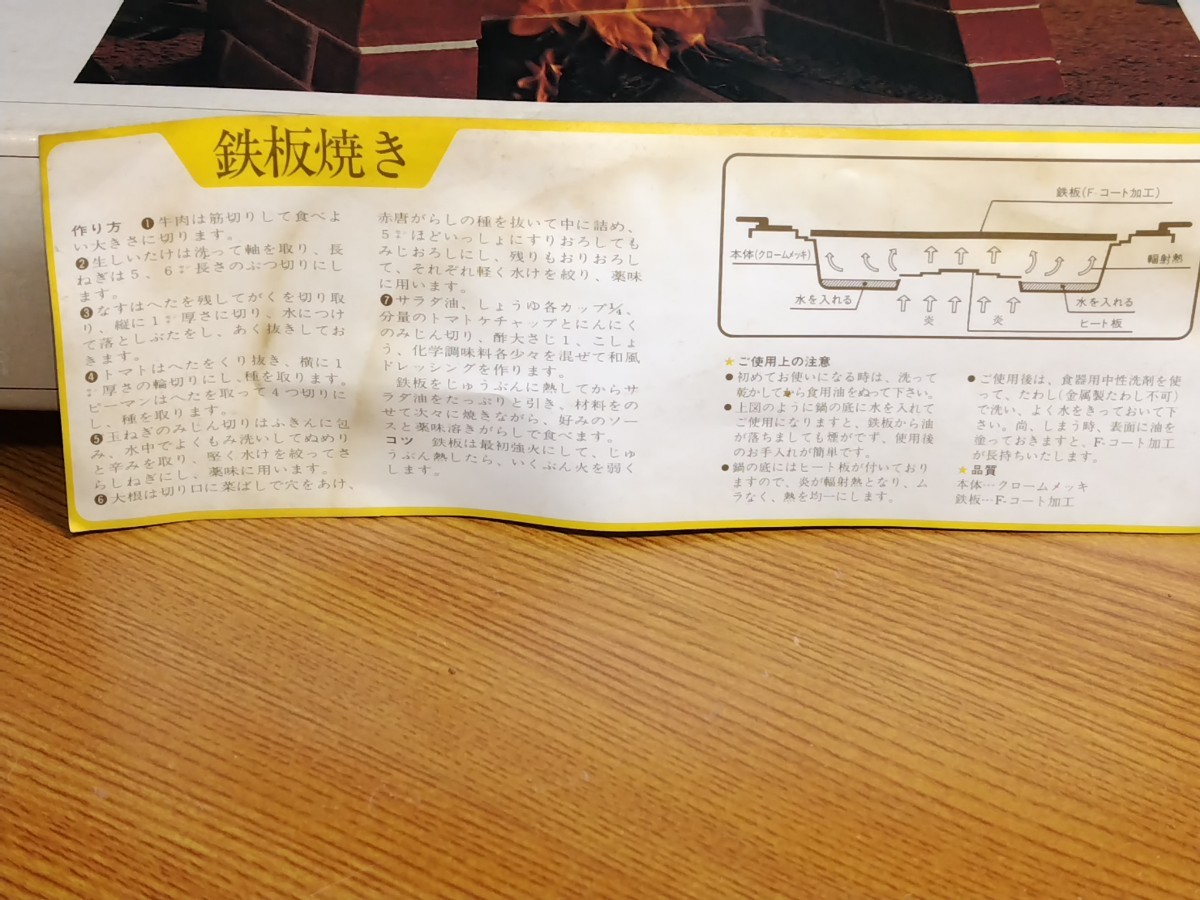 鉄板焼き
作り方 ❶牛肉は筋切りして食べよ
い大きさに切ります。
❷生しいたけは洗って軸を取り、長
ねぎは5、6㌢長さのぶつ切りにし
ます。
❸なすはへたを残してがくを切り取
り、縦に1㌢厚さに切り、水につけ
て落としぶたをし、あく抜きしてお
きます。
❹トマトはへたをくり抜き、横に1
㌢厚さの輪切りにし、種を取ります。
ピーマンはへたを取って4つ切りに
し、種を取ります。
❺玉ねぎのみじん切りはふきんに包
み、水中でよくもみ洗いしてぬめり
と辛みを取り、堅く水けを絞ってさ
らしねぎにし、薬味に用います。
❻大根は切り口に菜ばしで穴をあけ、
赤唐がらしの種を抜いて中に詰め、
5㌢ほどいっしょにすりおろしても
みじおろしにし、残りもおりおろし
て、それぞれ軽く水けを絞り、薬味
に用います。
❼サラダ油、しょうゆ各カップ¼、
分量のトマトケチャップとにんにく
のみじん切り、酢大さじ1、こしょ
う、化学調味料各少々を混ぜて和風
ドレッシングを作ります。
鉄板をじゅうぶんに熱してからサ
ラダ油をたっぷりと引き、材料をの
せて次々に焼きながら、好みのソー
スと薬味溶きがらしで食べます。
コツ 鉄板は最初強火にして、じゅ
うぶん熱したら、いくぶん火を弱く
します。
鉄板(F-コート加工)
本体(クロームメッキ)
輻射熱
水を入れる
水を入れる
炎
炎
ヒート板
★ご使用上の注意
●初めてお使いになる時は、洗って
乾かしてから食用油をぬって下さい。
●上図のように鍋の底に水を入れて
ご使用になりますと、鉄板から油
が落ちましても煙がでず、使用後
のお手入れが簡単です。
●鍋の底にはヒート板が付いており
ますので、炎が輻射熱となり、ム
ラなく、熱を均一にします。
●ご使用後は、食器用中性洗剤を使
って、たわし(金属製たわし不可)
で洗い、よく水をきっておいて下
さい。尚、しまう時、表面に油を
塗っておきますと、F-コート加工
が長持ちいたします。
★品質
本体…クロームメッキ
鉄板…F-コート加工